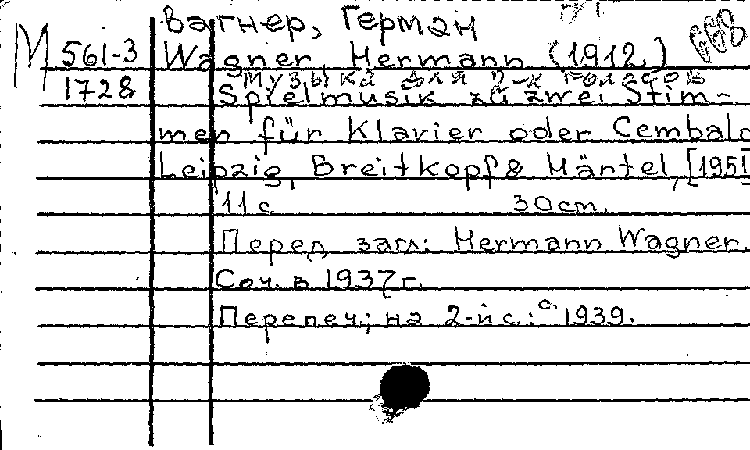 Вагнер, Герман
М 561-3 Wagner, Hermann (1912.)
1728 Музыка для 2-х голосов
Spielmusik zu zwei Stim-
men für Klavier oder Cembalo
Leipzig, Breitkopf & Härtel, [1951]
11 с 30cm.
Перед загл: Hermann Wagner.
Соч. в 1937г.
Перепеч; на 2-й с: с 1939.